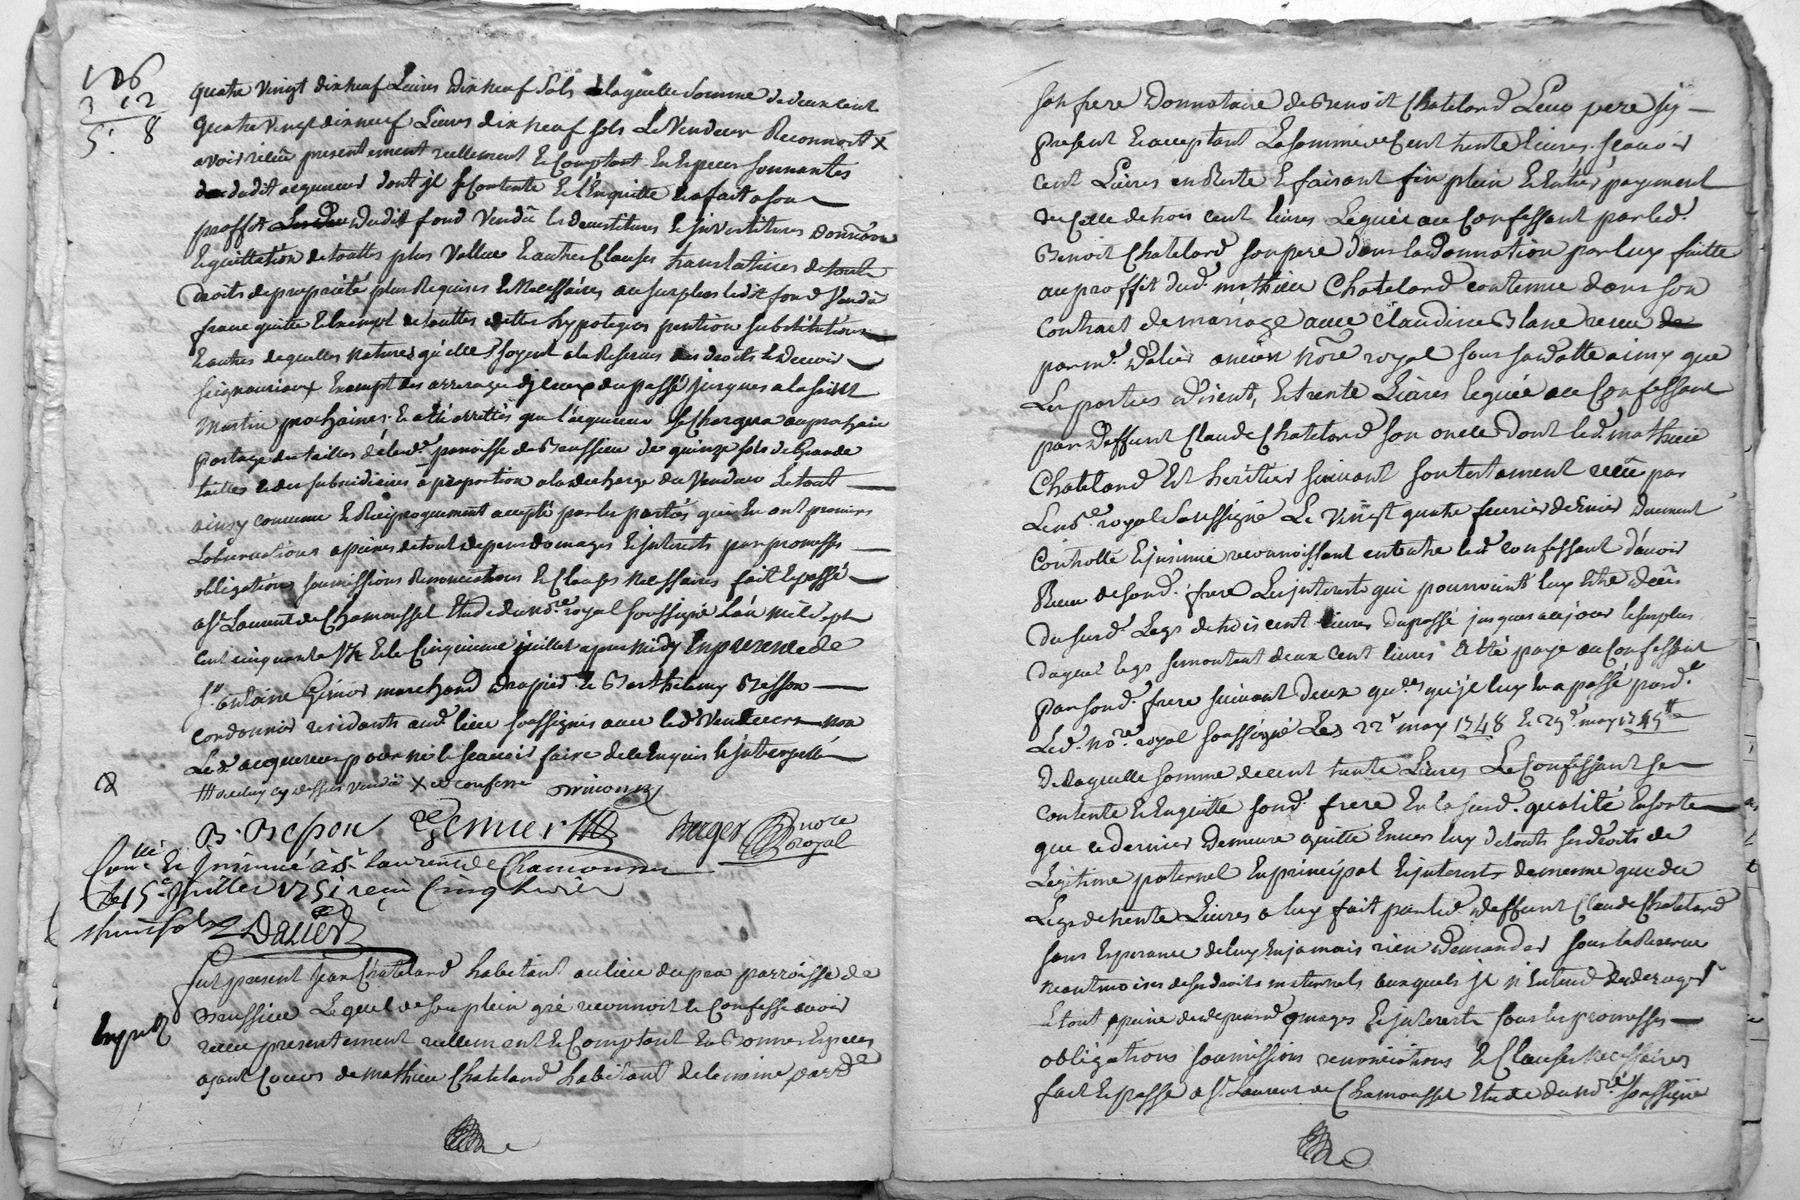 106
3 12
5. 8
quatre vingt dix neuf Livres dix neuf sols a laquelle somme de deux cent
quatre vingt dix neuf Livres dix neuf sols Le Vendeur Reconnoit X
avoir reçeu presentement reellement et Comptant En Especes sonnantes
dudit acquereur dont il se Contente Et l'En quitte En a fait a son
proffit dudit fond Vendû les devestitures Et investitures
Et quittation de touttes plus Vallue Et autres Clauses translatives de touts
droits de proprieté plus Requises Et Necessaires au surplus ledit fond Vendû
franc quitte Et Exempt de touttes dettes hypoteques pention substitutions
Et autres de quelles natures qu'elles soyent a la Reserve des droits Et Devoirs
seigneuriaux Exempt des arrerages d'iceux du passé jusques a la saint
Martin prochaine, Et a été arretté que l'acquereur se Chargera au prochain
partage des tailles de lad.e parroisse de Brussieu de quinze sols de Grande
tailles Et des subsidiaires a proportion a la décharge du Vendeur Le tout
ainsy Convenu Et Reciproquement accepté par les parties qui En ont promis
L'observations a peines de tout depens domages Et interests par promesses
obligations soumissions Renonciations Et Clauses necessaires fait Et passé
a St Laurent de Chamousset Etude du no.re royal soussigné L'an mil sept
cent cinquante Et Le Cinquieme juillet apres midy En presence de
sr antoine Grenier marchand drapier Et Barthelemy Besson
cordonnier residants aud. lieu soussignés avec led. Vendeur non
Led. acquereur pour ne le sçavoir faire de ce Enquis Et interpellé
cy dessus vendû X et confesse
B. Besson Grenier Berger nore royal
Con.llé Et Insinué à St Laurent de Chamousset
le 15e juillet 1751 reçû Cinq livres
Dalier
fut present jean Chateland habitant au lieu du pra parroisse de
Brussieu Lequel de son plein gré reconnoit Et Confesse avoir
reçeu presentement reellement Et Comptant En Bonnes Especes
ayant Cours de mathieu Chateland habitant de la meme parr.e
Exped.
son frere Donnataire de Benoit Chateland Leur pere icy
present Et acceptant La somme de Cent trente livres, sçavoir
cent Livres En Reste Et faisant fin plein Et Entier payement
de Celle de trois cent livres Leguée au Confessant par led.
Benoit Chateland son pere dans la donnation par luy faitte
au proffit dud. mathieu Chateland contenue dans son
Contract de mariage avec Claudine Blanc receu
par me. Dalier ancien no.re royal sous sa datte ainsy que
Les parties disent, Et trente Livres leguée au Confessant
par Deffunt Claude Chateland son oncle dont led. mathieu
Chateland Est heritier suivant son testament receu par
Le no.re royal soussigné Le Vingt quatre fevrier dernier Duement
Controllé Et insinué reconnoissant en outre led. confessant d'avoir
Receu de sond. frere Les interests qui pouvoient luy Etre deûs
Du susd. Legs de trois cent livres du passé jusques a ce jour le surplus
duquel legs se montant deux Cent livres a Eté payé au Confessant
par sond. frere suivant deux qu.ces qu'il luy En a passé pard.
Led. no.re royal soussigné Les 22e may 1748 Et 29e may
De laquelle somme de cent trente Livres Le Confessant se
contente Et En quitte sond. frere En la susd. qualité En sorte
que ce dernier demeure quitte Envers luy de touts ses droits de
Legitime paternel En principal Et interests de meme que du
Legs de trente Livres a luy fait par led. deffunt Claude Chateland
sans Esperance de luy En jamais rien Demander sous la Reserve
neantmoins de ses droits maternels auxquels il n'Entend deroger
Le tout a peine de depens domages Et interests sous les promesses
obligations soumissions renonciations Et Clauses necessaires
fait Et passé a St Laurent de Chamousset Etude du no.re soussigné